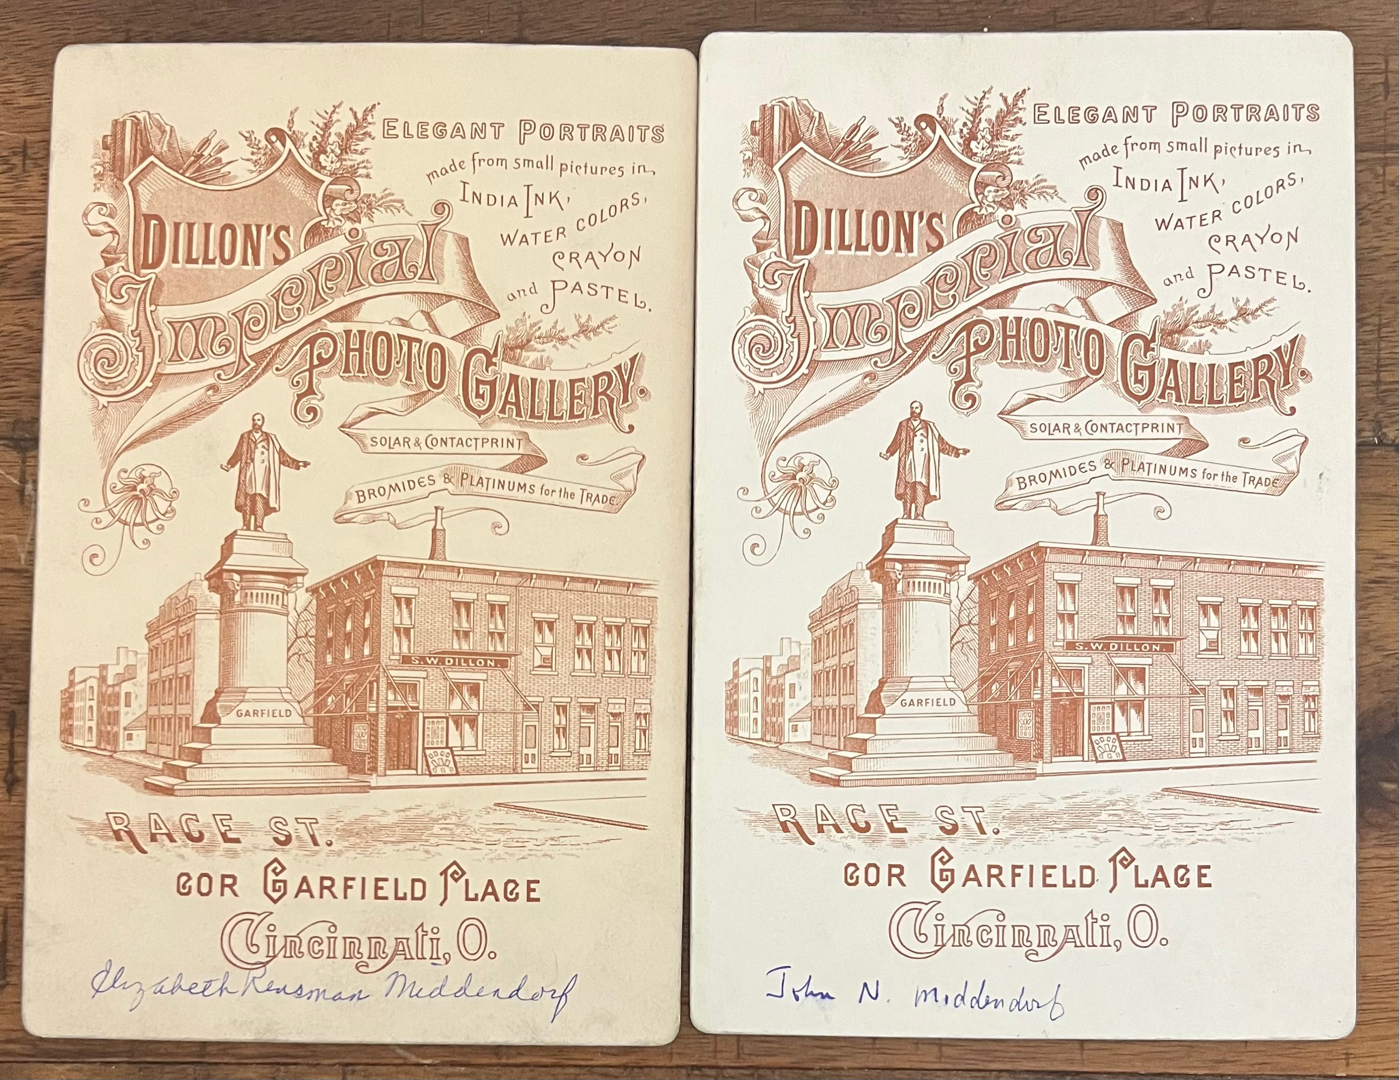 ELEGANT PORTRAITS
made from small pictures in
INDIA INK,
WATER COLORS,
CRAYON
and PASTEL.
DILLON'S
Imperial
PHOTO GALLERY.
SOLAR & CONTACT PRINT
BROMIDES & PLATINUMS for the TRADE
S.W. DILLON.
GARFIELD
RACE ST.
COR GARFIELD PLACE
Cincinnati, O.
Elizabeth Rensman Middendorf
ELEGANT PORTRAITS
made from small pictures in
INDIA INK,
WATER COLORS,
CRAYON
and PASTEL.
DILLON'S
Imperial
PHOTO GALLERY.
SOLAR & CONTACT PRINT
BROMIDES & PLATINUMS for the TRADE
S.W. DILLON.
GARFIELD
RACE ST.
COR GARFIELD PLACE
Cincinnati, O.
John N. Middendorf